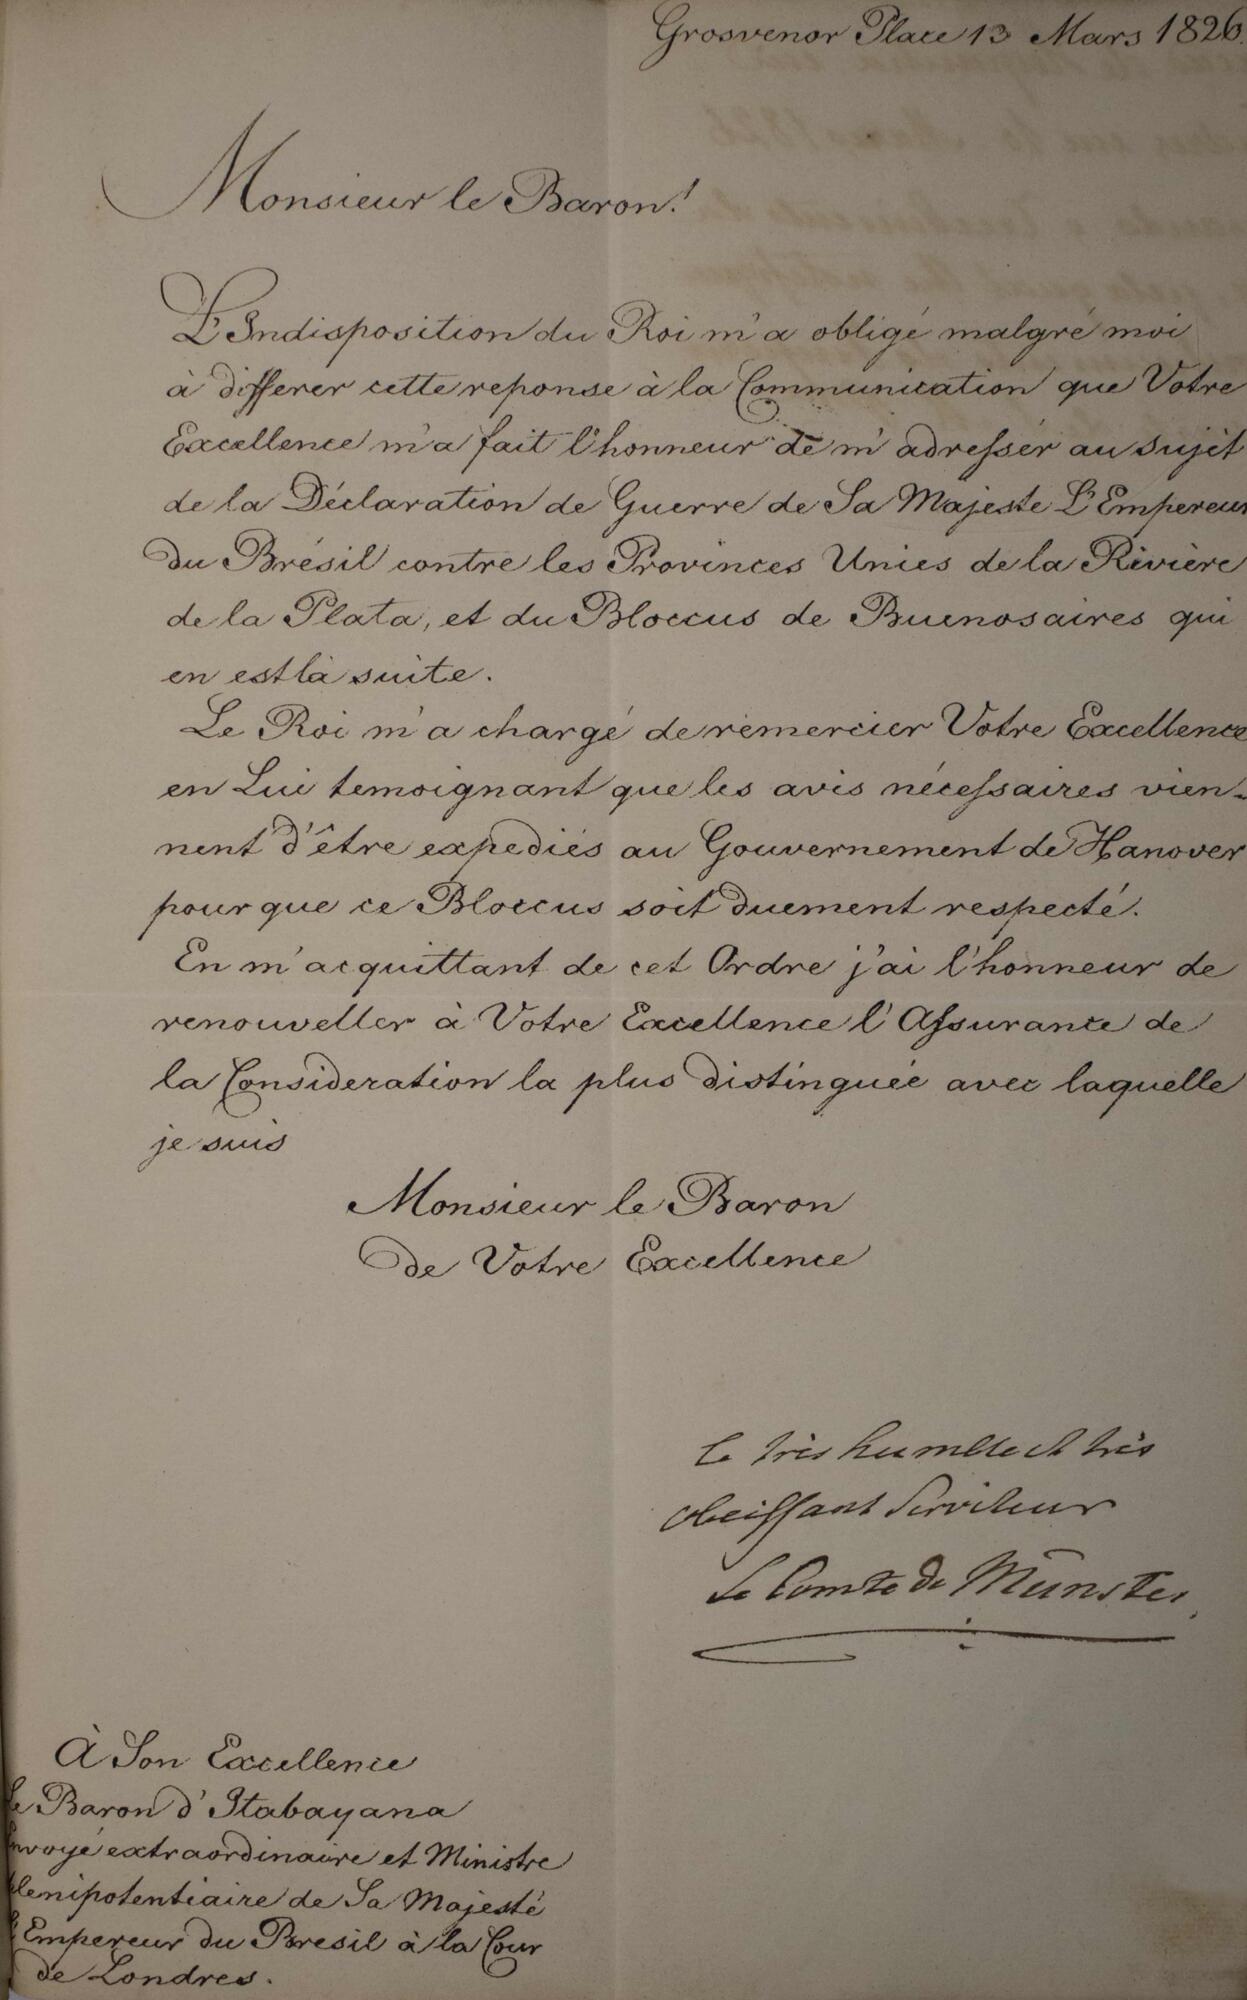 Grosvenor Place 13 Mars 1826.
Monsieur le Baron!
L'Indisposition du Roi m'a obligé malgré moi
à differer cette reponse à la Communication que Votre
Excellence m'a fait l'honneur de m'adresser au sujèt
de la Déclaration de Guerre de Sa Majeste L'Empereur
du Brésil contre les Provinces Unies de la Rivière
de la Plata, et du Bloccus de Buenosaires qui
en est la suite.
Le Roi m'a chargé de remercier Votre Excellence
en Lui temoignant que les avis nécessaires vien-
nent d'être expediés au Gouvernement de Hanover
pour que ce Bloccus soit duement respecté.
En m'acquittant de cet Ordre j'ai l'honneur de
renouveller à Votre Excellence l'Assurance de
la Consideration la plus distinguée avec laquelle
je suis
Monsieur le Baron
de Votre Excellence
le très humble et très
obeissant Serviteur
Le Comte de Münster.
À Son Excellence
le Baron d'Itabayana
Envoyé extraordinaire et Ministre
plenipotentiaire de Sa Majesté
L'Empereur du Bresil à la Cour
de Londres.